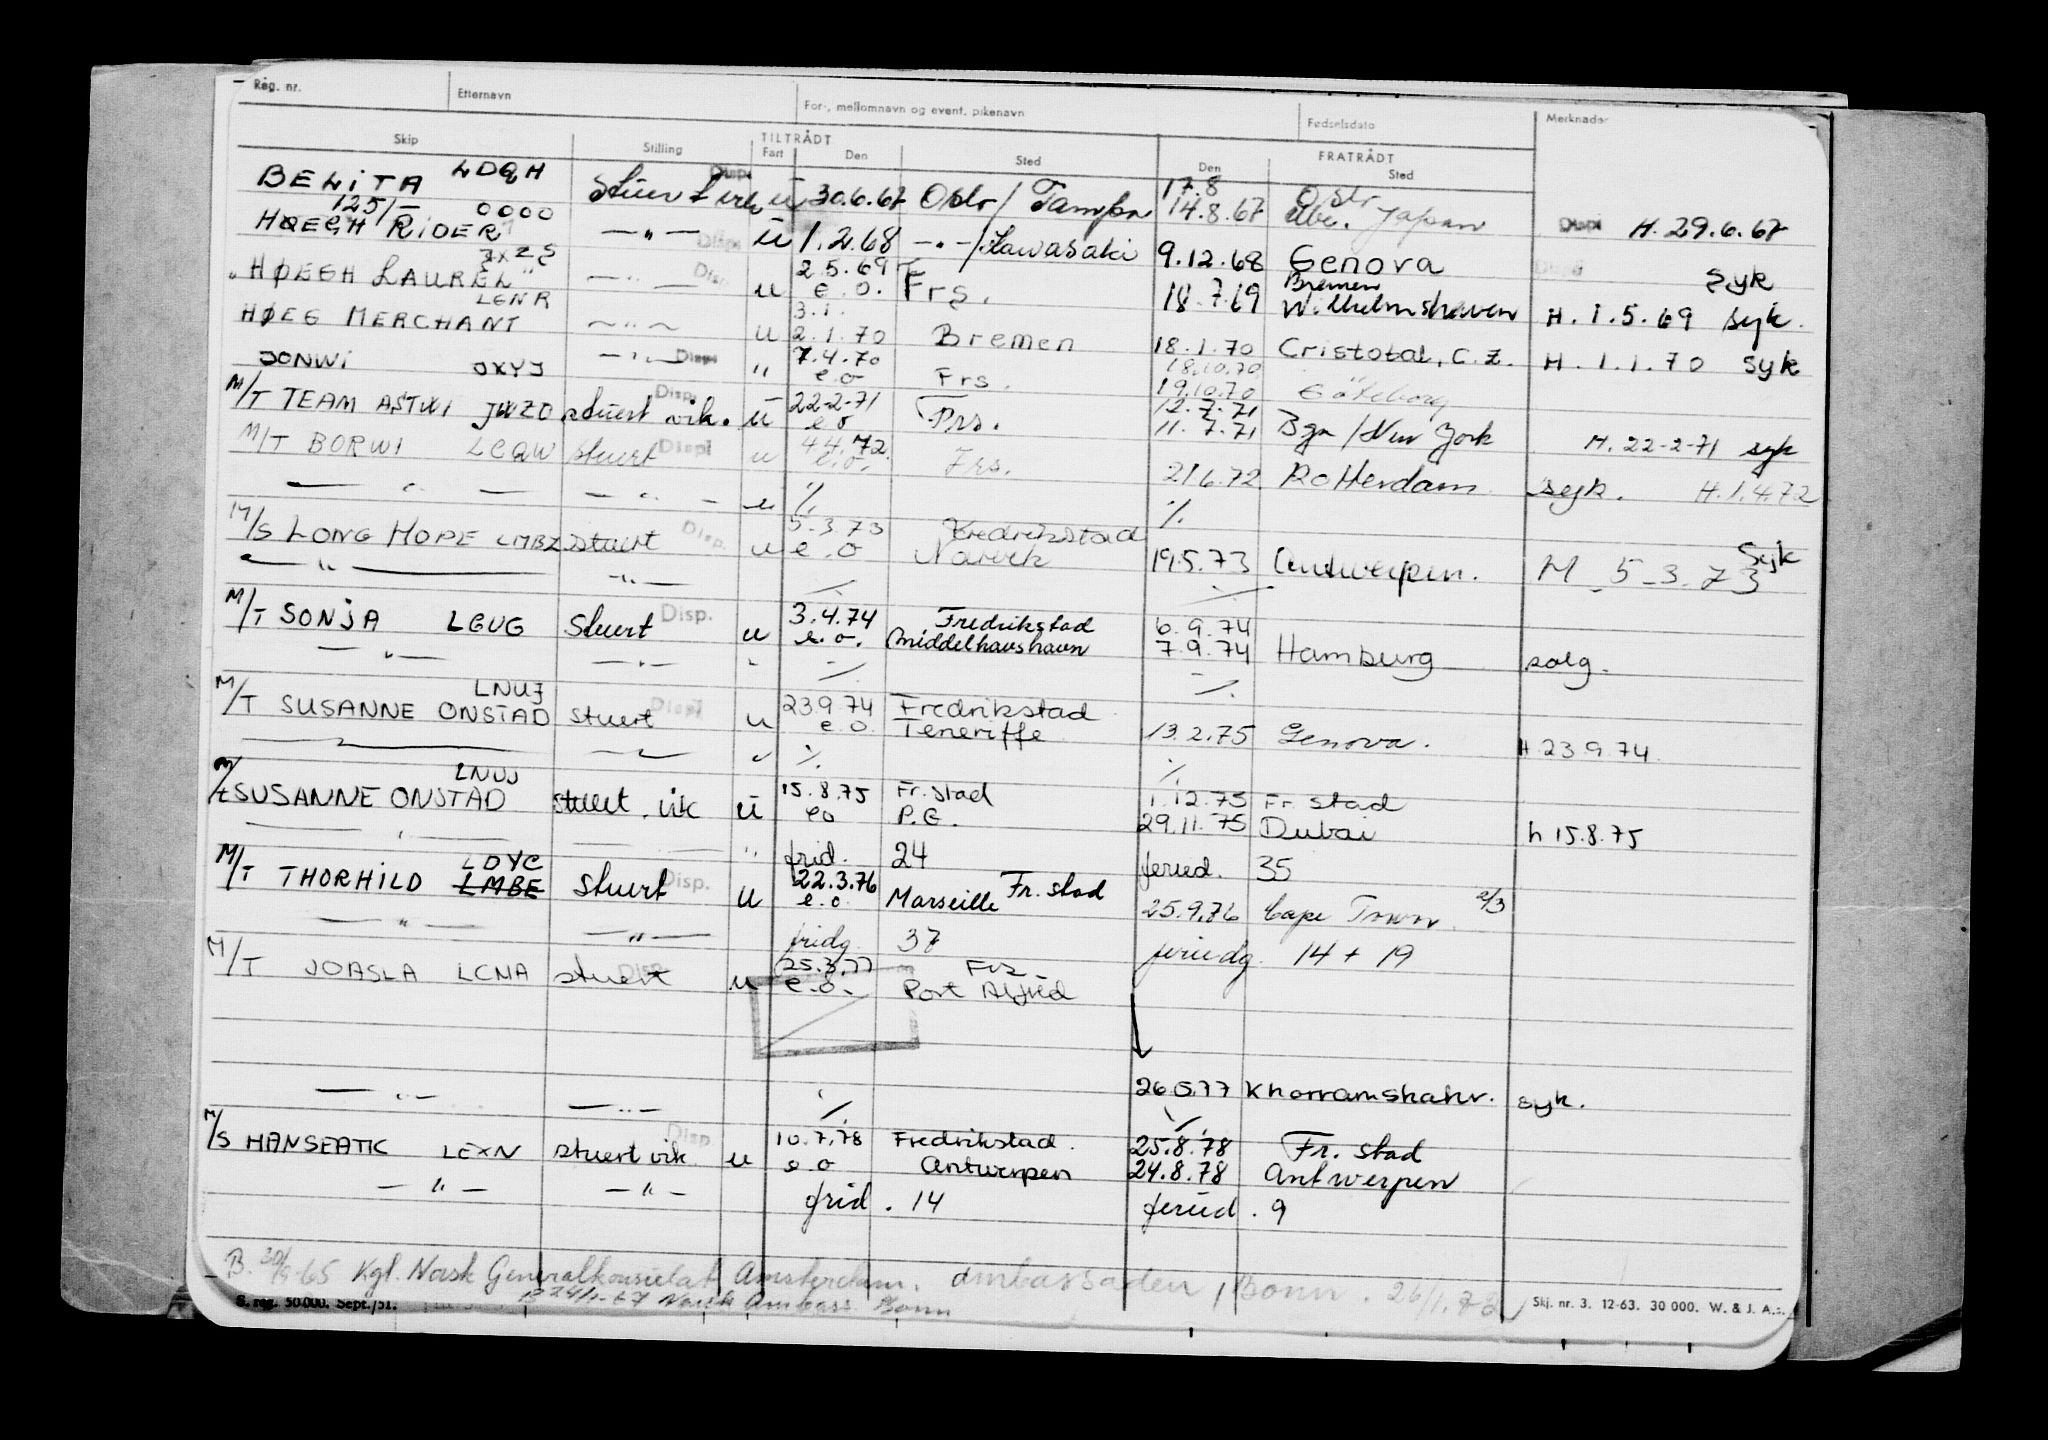 Reg. nr. Etternavn For-, mellomnavn og event. pikenavn Fødselsdato Merknader
TILTRÅDT FRATRÅDT
Skip Stilling Fart Den Sted Den Sted
BELITA LDQH Disp. ū 30.6.67 Oslo / Tampa 17.8 14.8.67 Oslo Japan Disp H. 29.6.67
125/- 0000
HØEGH RIDER — " — Disp. ū 1.2.68 — " — / Kawasaki 9.12.68 Genova syk
ZXZS
"HØEGH LAUREL" — " — Disp. u 2.5.69 e.o. Frs. 18.7.69 Bremen Wilhelmshaven H. 1.5.69 syk.
LENR 3.1.
HØEG MERCHANT — " — u 2.1.70 Bremen 18.1.70 Cristobal, C.Z. H. 1.1.70 syk
JONWI JXYJ — " — Disp " 7.4.70 e.o Frs. 18.10.70 19.10.70 Göteborg
M/T TEAM ASTWI JWZO stuert vik. Disp. ū 22-2-71 e o Frs. 12.7.71 11.7.71 Bgn / New York H. 22-2-71 syk
M/T BORWI LCQW stuert Disp u 4.4.72 e.o. Frs. 21.6.72 Rotterdam syk. H.1.4.72
— " — — " — u ./. ./.
M/S LONG HOPE LMBZ stuert Disp. u 5.3.73 e.o Fredrikstad Narvik 19.5.73 Antwerpen. M 5-3.73 Syk
— " — — " — ./. ./.
M/T SONJA LGUG Stuert Disp. u 3.4.74 e.o. Fredrikstad Middelhavshavn 6.9.74 7.9.74 Hamburg salg.
— " — — " — " ./. ./.
LNUJ
M/T SUSANNE ONSTAD stuert Disp u 23.9.74 e.o. Fredrikstad Teneriffe 13.2.75 Genova. H 23.9.74
./. ./.
LNUJ
M/t SUSANNE ONSTAD stuert. vik ū 15.8.75 eo Fr.stad P.G. 1.12.75 29.11.75 Fr.stad Dubai h 15.8.75
— " — " frid. 24 feried. 35
M/T THORHILD LDYC LMBE stuert Disp. u 22.3.76 e.o. Marseille Fr.stad 25.9.76 Cape Town 2/3
— " — — " — fridg. 37 feriedg. 14 + 19
M/T JOASLA LCNA stuert Disp u 25.3.77 e.o. Frs Port Alfred
— " — — " — ./. 26.5.77 Khorramshahr. syk.
./.
M/S HANSEATIC LEXN stuert vik. Disp u 10.7.78 e.o Fredrikstad. Antwerpen 25.8.78 24.8.78 Fr.stad Antwerpen
— " — — " — frid. 14 feried. 9
B. 20/9-65 Kgl. Norsk Generalkonsulat, Amsterdam. Ambassaden, Bonn. 26/1.72
S. reg. 50.000. Sept./51. Norsk Ambass. Bonn Skj. nr. 3. 12-63. 30 000. W. & J. A.s.